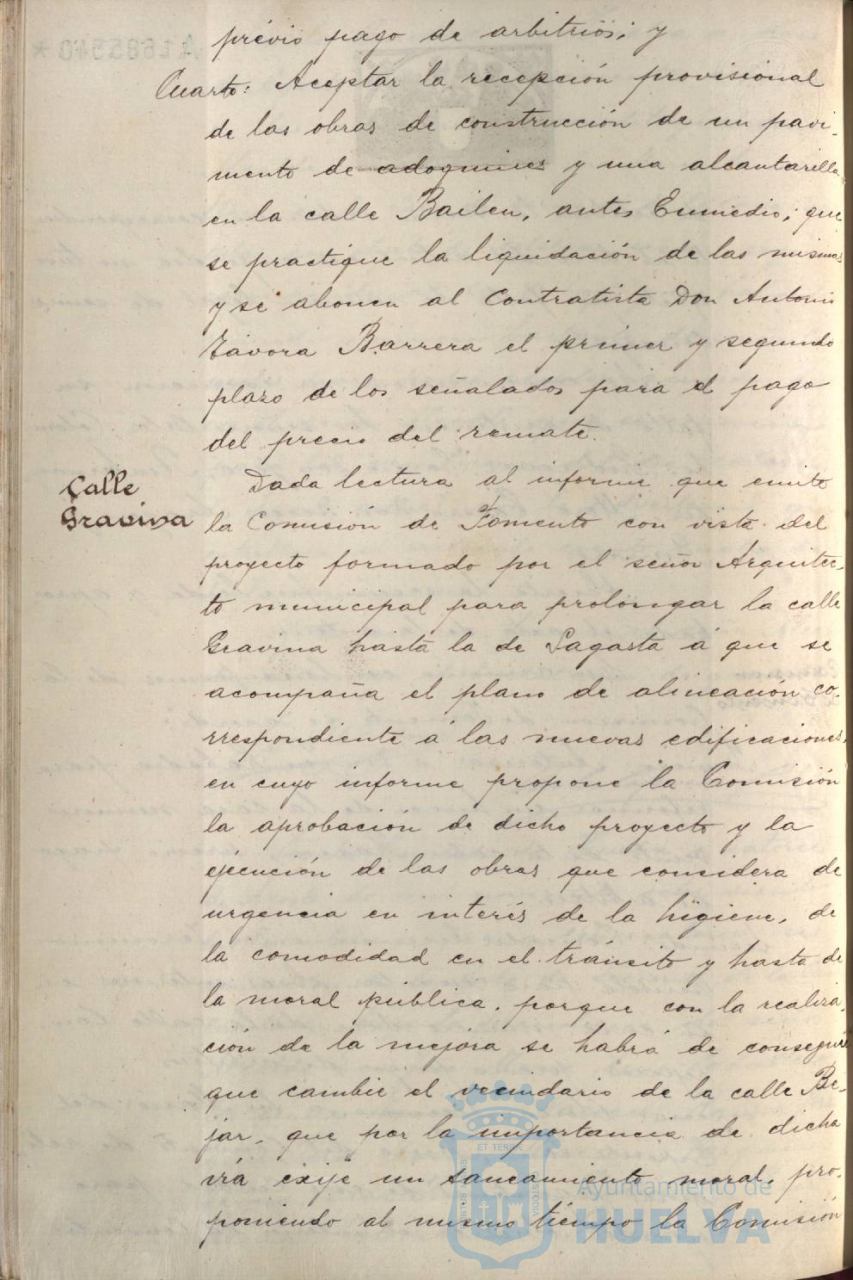 previo pago de arbitrios; y
Cuarto: Aceptar la recepción provisional
de las obras de construcción de un pavi-
mento de adoquines y una alcantarilla
en la calle Bailen, antes Enmedio; que
se practique la liquidación de las mismas
y se abonen al Contratista Don Antonio
Távora Barrera el primer y segundo
plazo de los señalados para el pago
del precio del remate.
Calle
Gravina
Dada lectura al informe que emite
la Comisión de Fomento con vista del
proyecto formado por el señor Arquitec-
to municipal para prolongar la calle
Gravina hasta la de Sagasta á que se
acompaña el plano de alineación co-
rrespondiente á las nuevas edificaciones,
en cuyo informe propone la Comisión
la aprobación de dicho proyecto y la
ejecución de las obras que considera de
urgencia en interés de la higiene, de
la comodidad en el tránsito y hasta de
la moral pública, porque con la realiza-
ción de la mejora se habrá de conseguir
que cambie el vecindario de la calle Be-
jar, que por la importancia de dicha
vía exije un saneamiento moral, pro-
poniendo al mismo tiempo la Comisión
Ayuntamiento de
HUELVA